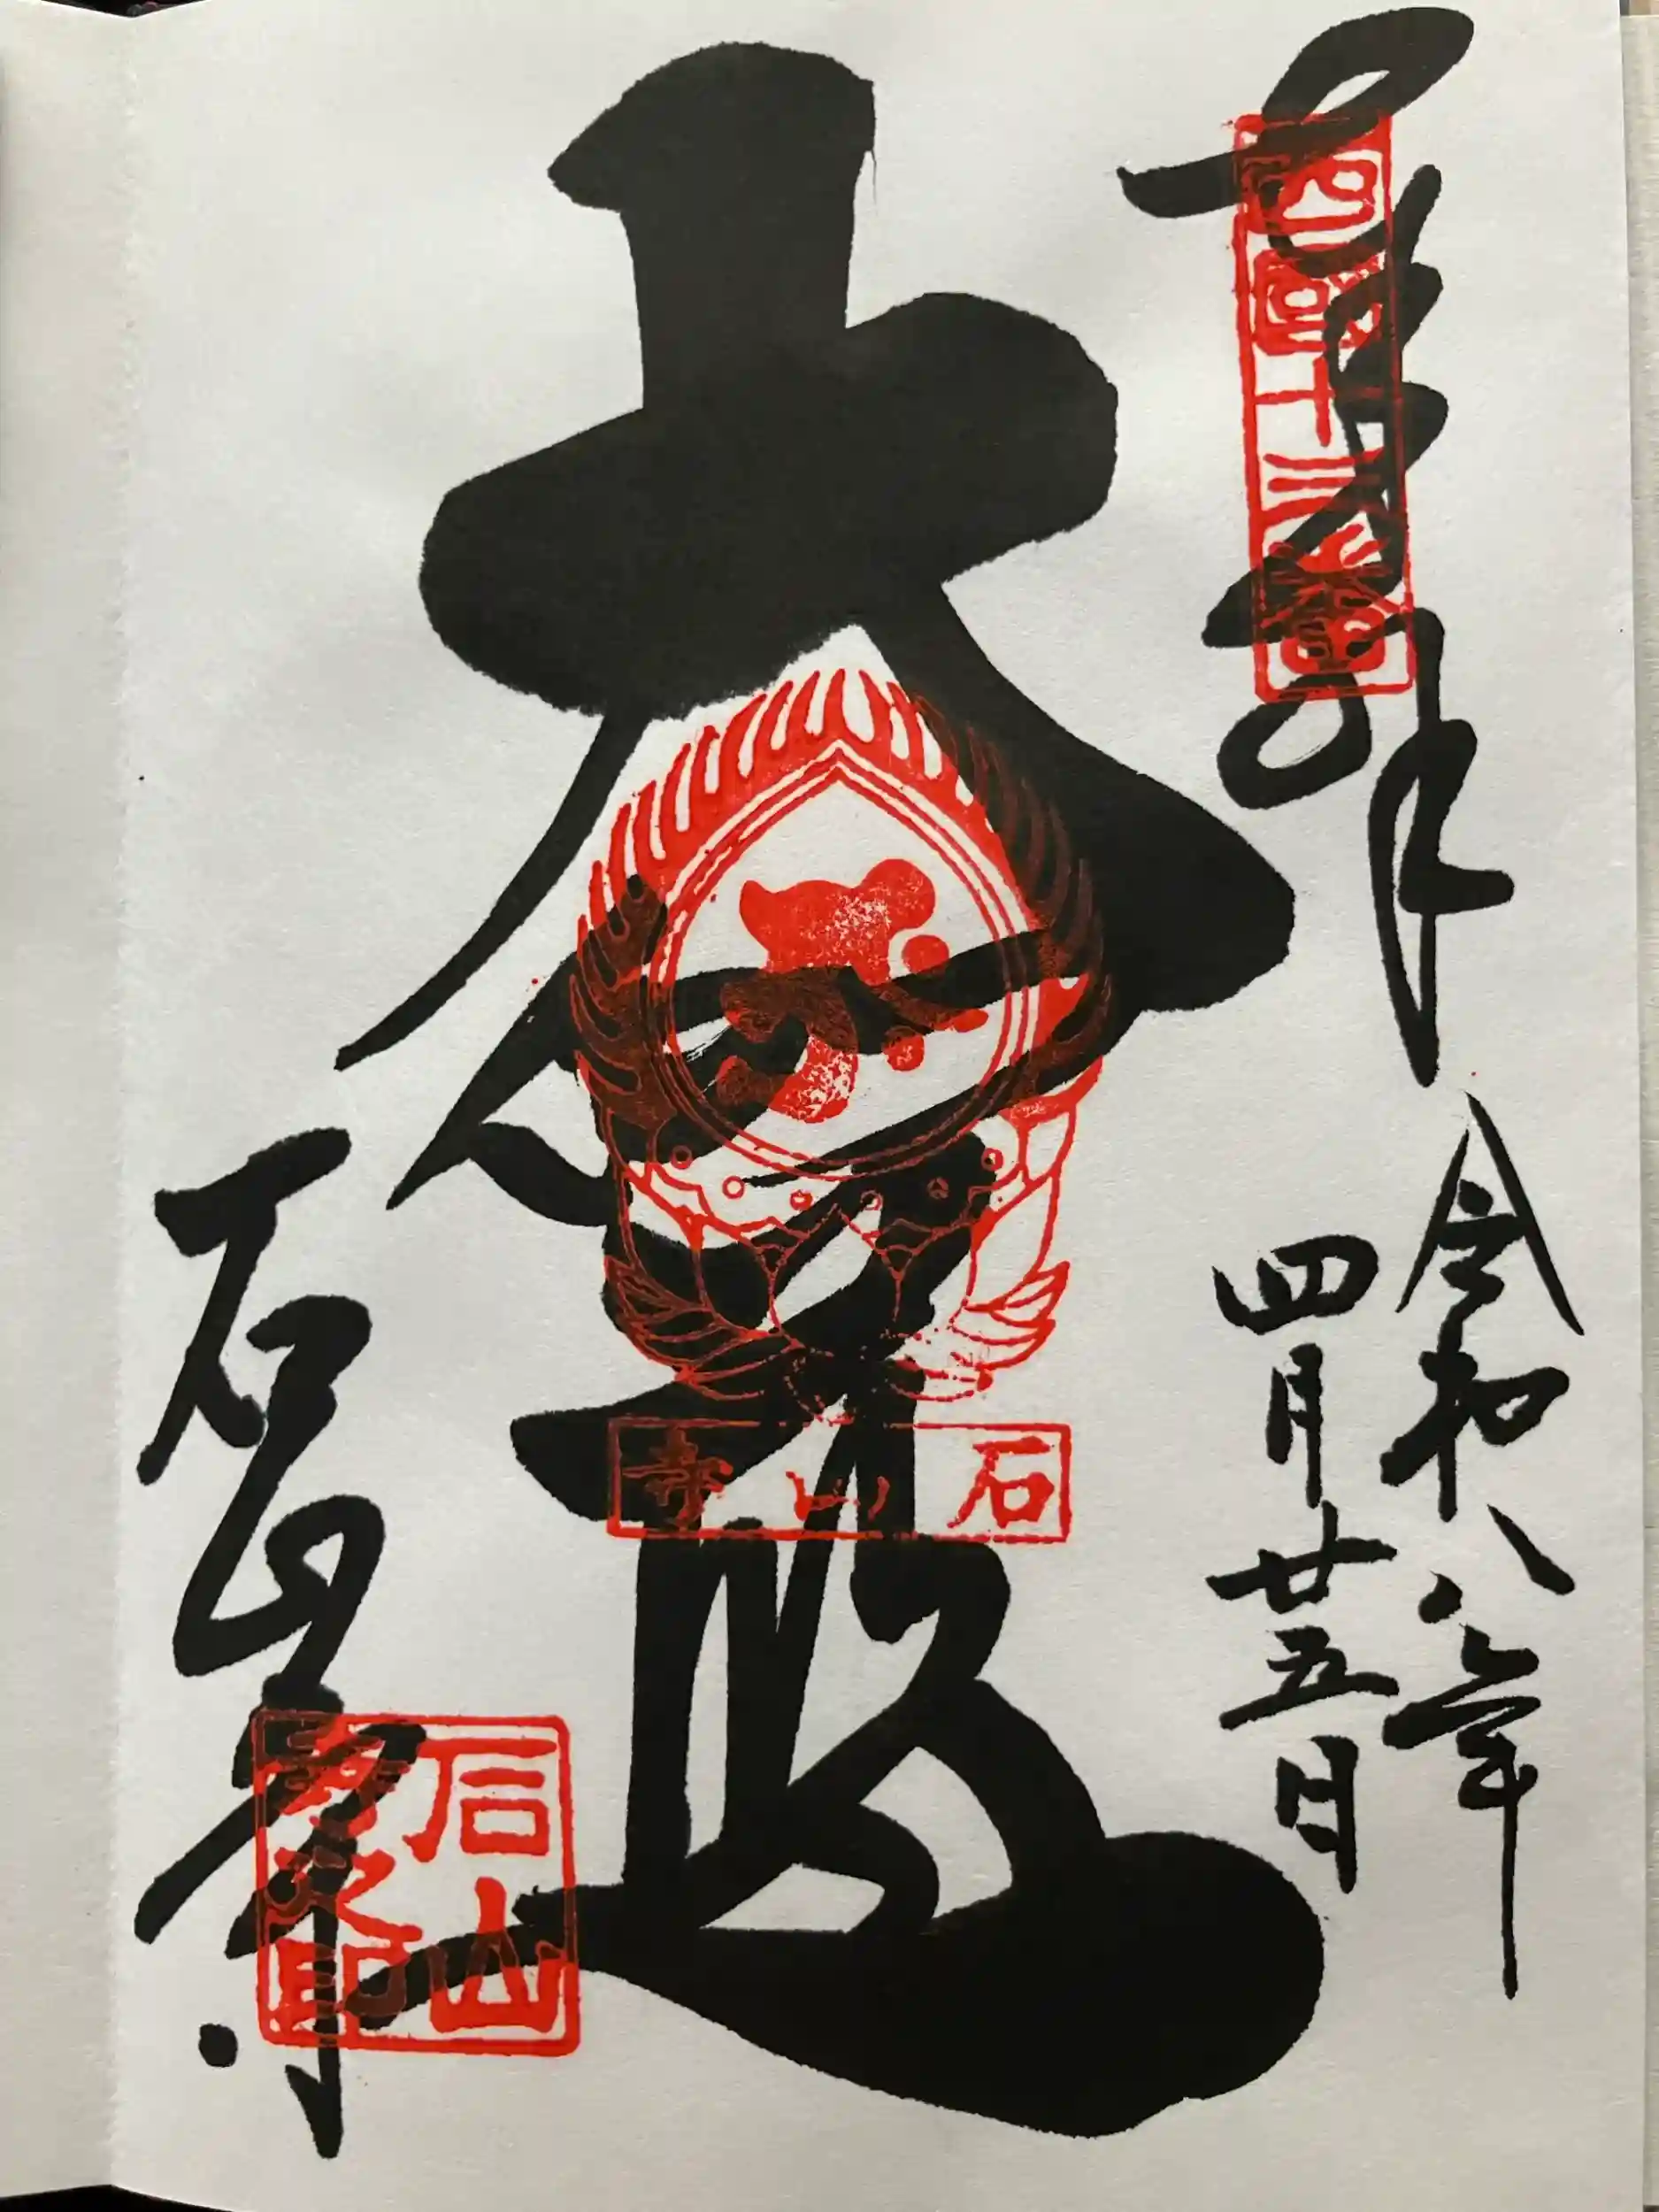 奉拝
西國十三番
令和八年
四月廿五日
大伽藍
石山寺
石山寺
石山寺之印